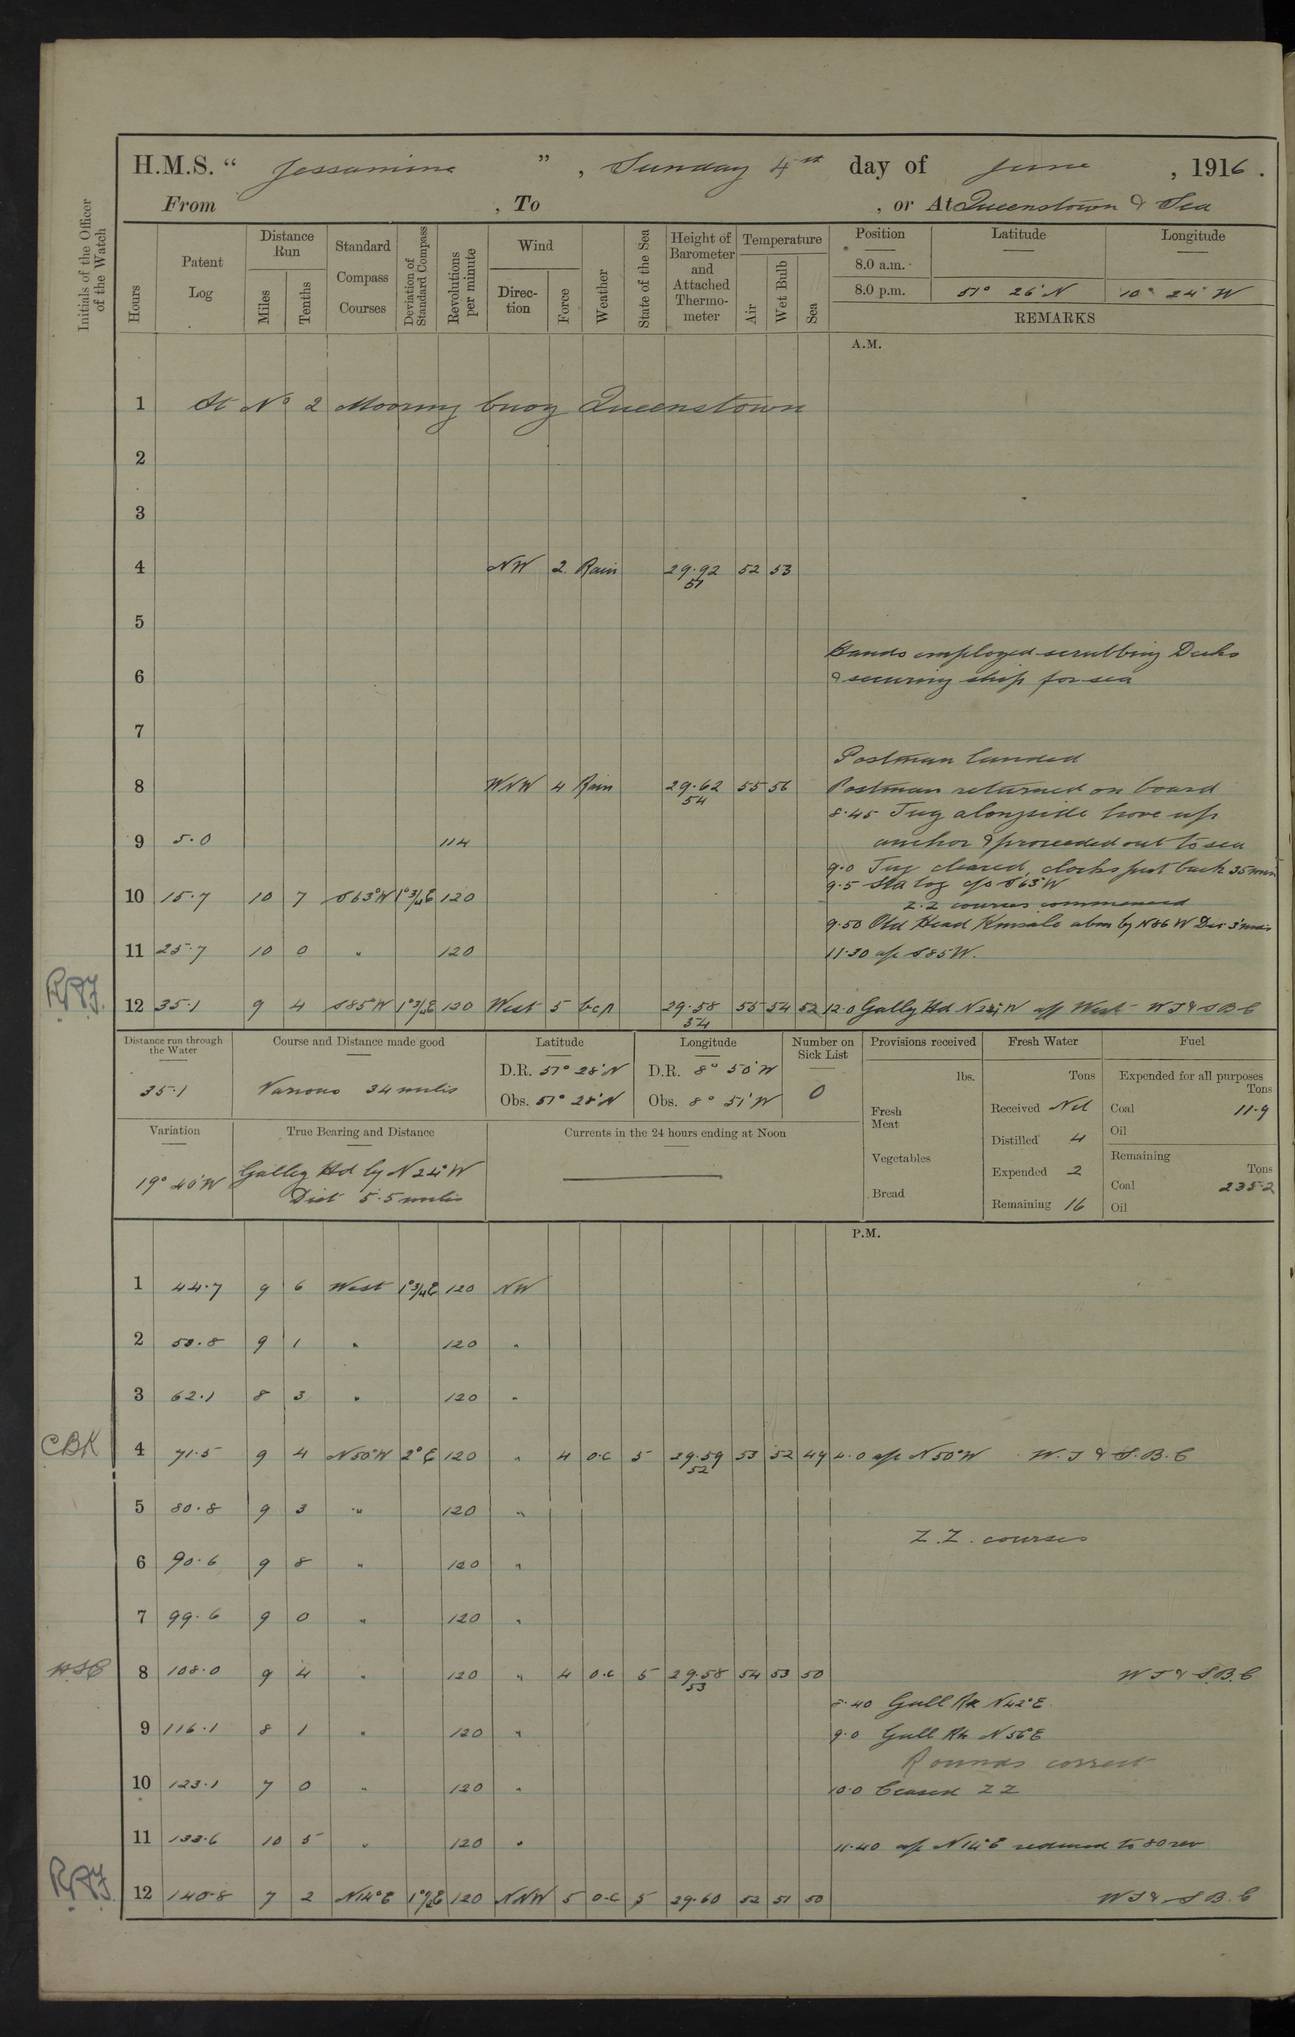 H.M.S. “ Jessamine ” , Sunday 4th day of June , 1916 .
From , To , or At Queenstown & Sea
Initials of the Officer of the Watch
Hours
Patent Log
Distance Run
Miles
Tenths
Standard Compass Courses
Deviation of Standard Compass
Revolutions per minute
Wind
Direc-tion
Force
Weather
State of the Sea
Height of Barometer and Attached Thermo-meter
Temperature
Air
Wet Bulb
Sea
Position Latitude Longitude
8.0 a.m.
8.0 p.m. 51° 26' N 10° 24' W
REMARKS
A.M.
1 At No 2 Mooring buoy Queenstown
2
3
4 NW 2 Rain 29.92 52 53
51
5
Hands employed scrubbing Decks
6 & securing ship for sea
7
Postman landed
8 WNW 4 Rain 29.62 55 56 Postman returned on board
54
8.45 Tug alongside hove up
9 5.0 114 anchor & proceeded out to sea
9.0 Tug cleared, clocks put back 35 min
9.5 Sta log c/o S63°W
10 15.7 10 7 S63°W 1°3/4E 120
Z.Z courses commenced
9.50 Old Head Kinsale abm by N86 W Dis 3' miles
11 25.7 10 0 " 120 11.30 a/c S85W.
12 35.1 9 4 S85°W 1°3/4E 120 West 5 bcp 29.58 55 54 52 12.0 Gally Hd N24°W a/c West W T & S B C
54
Distance run through the Water
35.1
Course and Distance made good
Various 34 miles
Latitude
D.R. 51° 28' N
Obs. 51° 28' N
Longitude
D.R. 8° 50' W
Obs. 8° 51' W
Number on Sick List
0
Provisions received
lbs.
Fresh Meat
Vegetables
Bread
Fresh Water
Tons
Received Nil
Distilled 4
Expended 2
Remaining 16
Fuel
Expended for all purposes
Tons
Coal 11.9
Oil
Remaining
Tons
Coal 235.2
Oil
Variation
19° 40' W
True Bearing and Distance
Galley Hd by N24°W
Dist 5.5 miles
Currents in the 24 hours ending at Noon
P.M.
1 44.7 9 6 West 1°3/4E 120 NW
2 53.8 9 1 " 120 "
3 62.1 8 3 " 120 "
CBK 4 71.5 9 4 N50°W 2°E 120 " 4 o.c 5 29.59 53 52 49 4.0 a/c N50°W W.T & S.B.C
52
5 80.8 9 3 " 120 "
Z.Z. courses
6 90.6 9 8 " 120 "
7 99.6 9 0 " 120 "
8 108.0 9 4 " 120 " 4 o.c 5 29.58 54 53 50 W T & S.B.C
53
8.40 Gull Rk N42°E
9 116.1 8 1 " 120 " 9.0 Gull Rk N56°E
Rounds correct
10 123.1 7 0 " 120 " 10.0 Ceased ZZ
11 133.6 10 5 " 120 " 11.40 a/c N14°E reduced to 80 rev
12 140.8 7 2 N14°E 1°1/2E 120 NNW 5 o.c 5 29.60 52 51 50 W T & S B.C